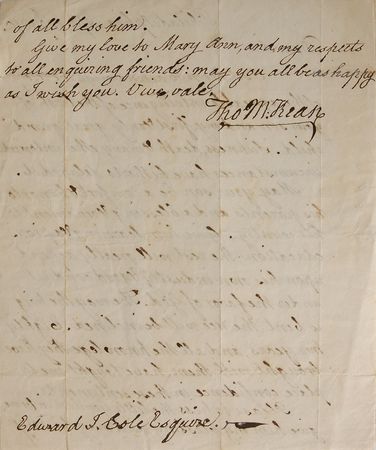 of all bless him.
Give my love to Mary Ann, and my respects
to all enquiring friends: may you all be as happy
as I wish you. Vive, vale.
Tho M:Kean
Edward J. Cole Esquire.